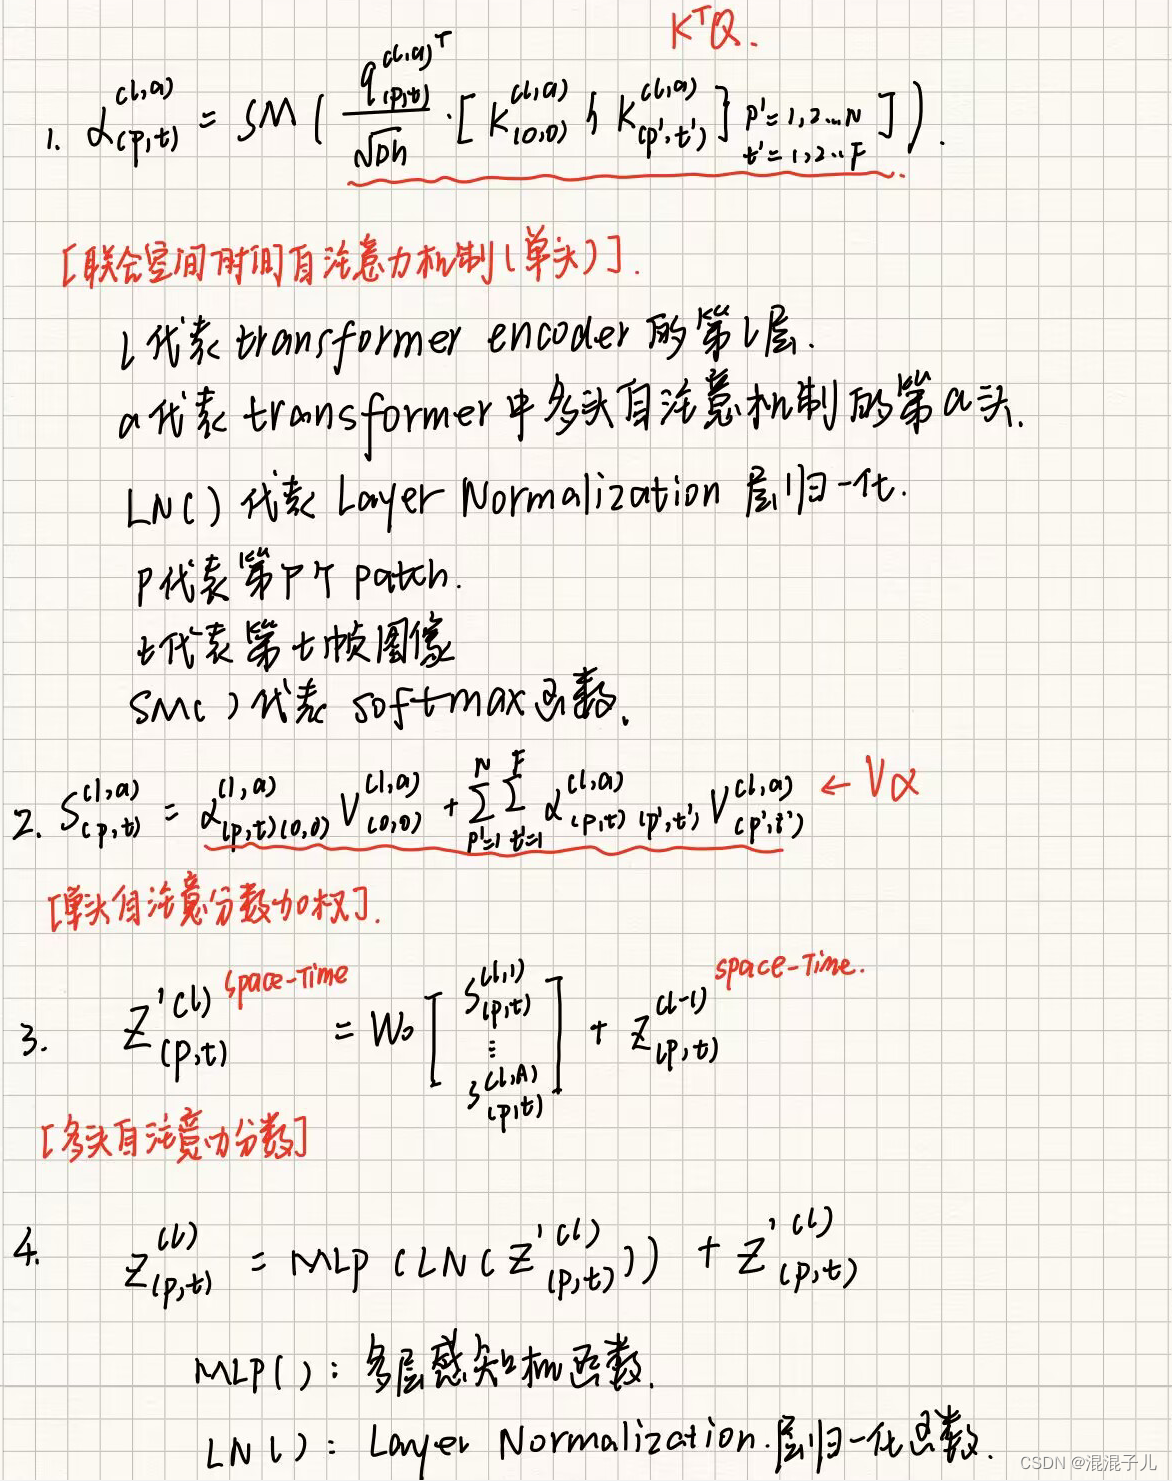 KᵀQ.
1. α_{(p,t)}^{(l,a)} = SM( \frac{q_{(p,t)}^{(l,a)T}}{\sqrt{Dh}} · [ K_{(0,0)}^{(l,a)} { K_{(p',t')}^{(l,a)} }_{p'=1,2...N t'=1,2..F} ] ).
[联合空间时间自注意力机制(单头)].
l代表transformer encoder的第l层.
a代表transformer中多头自注意机制的第a头.
LN( )代表 Layer Normalization 层归一化.
P代表第P个patch.
t代表第t帧图像
SM( )代表 softmax函数.
2. S_{(p,t)}^{(l,a)} = α_{(p,t)(0,0)}^{(l,a)} V_{(0,0)}^{(l,a)} + \sum_{p'=1}^{N} \sum_{t'=1}^{F} α_{(p,t)(p',t')}^{(l,a)} V_{(p',t')}^{(l,a)} ← Vα
[单头自注意分数加权].
3. Z'^{(l) space-Time}_{(p,t)} = W₀ [ S_{(p,t)}^{(l,1)} ⋮ S_{(p,t)}^{(l,A)} ] + Z_{(p,t)}^{(l-1) space-Time.}
[多头自注意力分数]
4. Z_{(p,t)}^{(l)} = MLP (LN( Z'^{(l)}_{(p,t)} )) + Z'^{(l)}_{(p,t)}
MLP( ): 多层感知机函数.
LN( ): Layer Normalization.层归一化函数.
CSDN @混混子儿